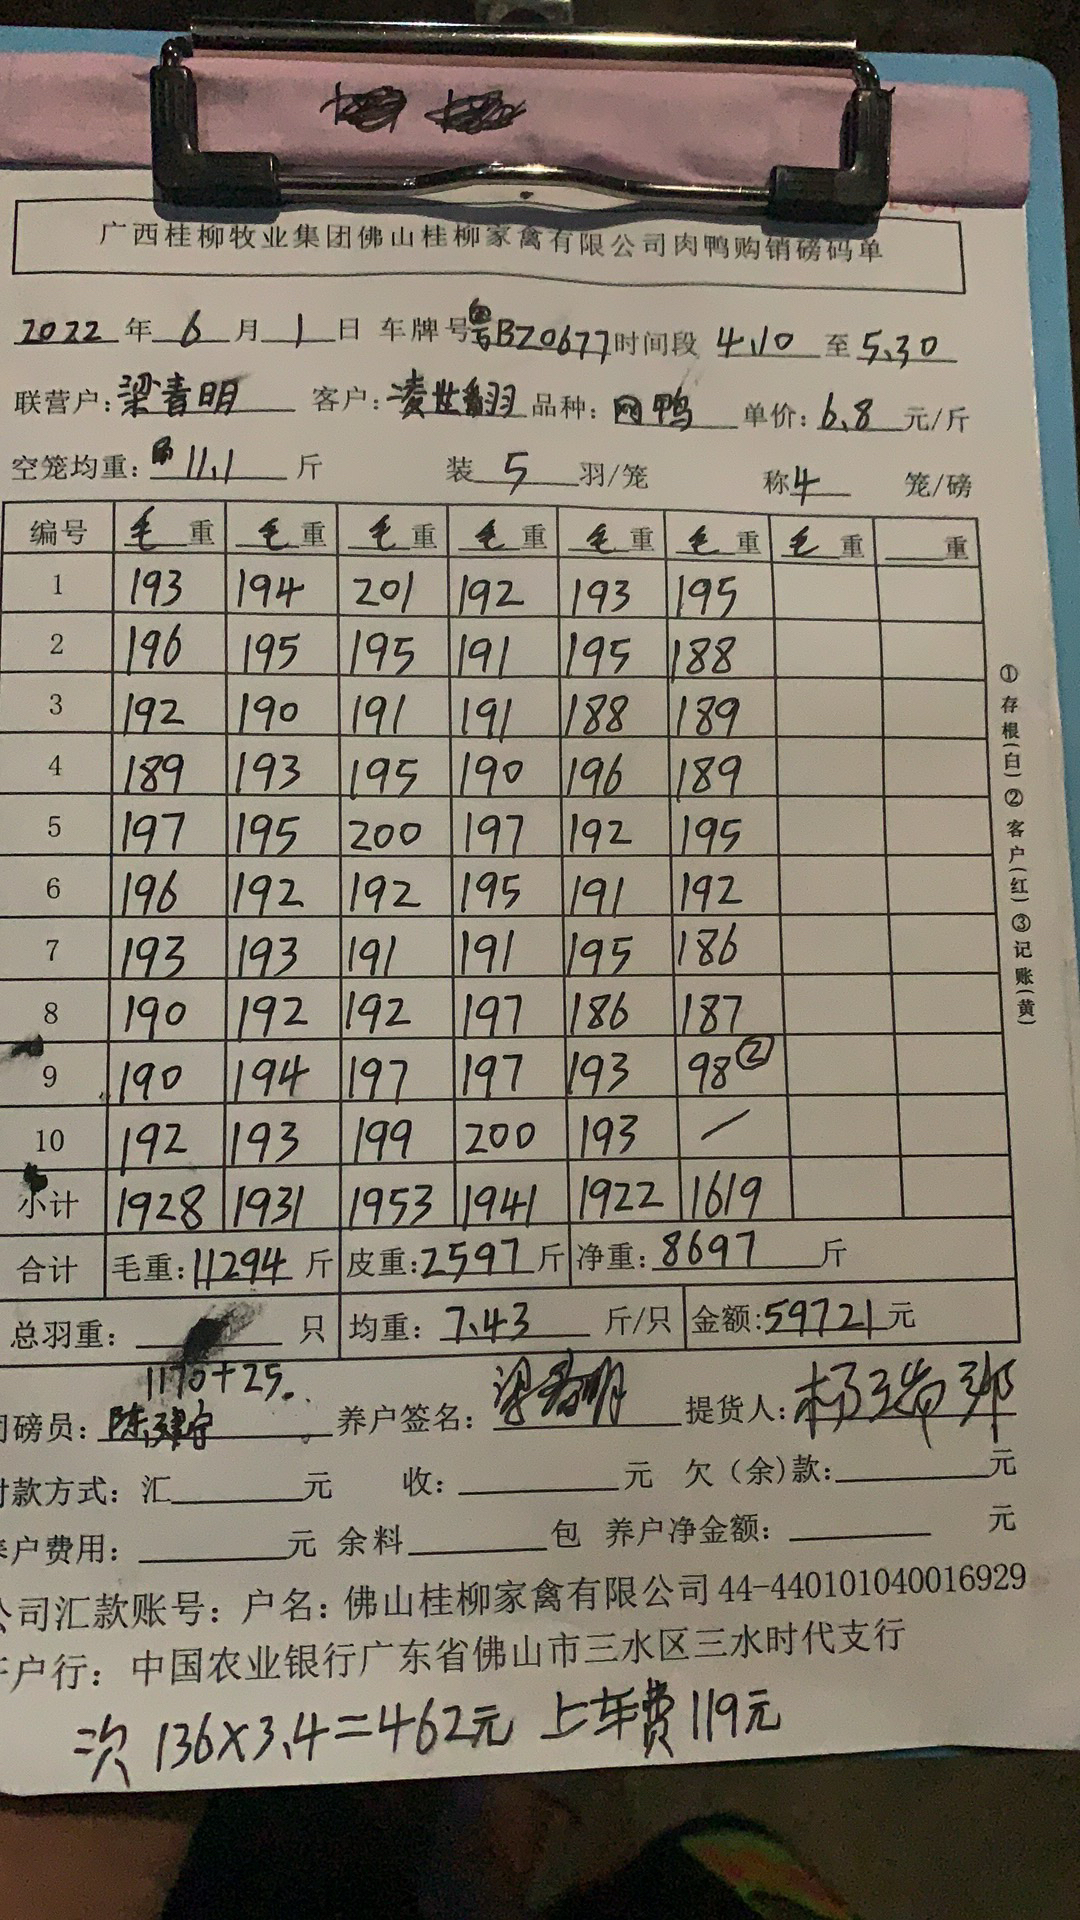 广西桂柳牧业集团佛山桂柳家禽有限公司肉鸭购销磅码单
2022 年 6 月 1 日 车牌号粤BZ0677时间段 4.10 至 5.30
联营户:梁青明 客户:凌世 品种: 鸭 单价: 6.8 元/斤
空笼均重: 11.1 斤 装 5 羽/笼 称 4 笼/磅
编号 毛重 毛重 毛重 毛重 毛重 毛重 毛重 重
1 193 194 201 192 193 195
2 196 195 195 191 195 188
3 192 190 191 191 188 189
4 189 193 195 190 196 189
5 197 195 200 197 192 195
6 196 192 192 195 191 192
7 193 193 191 191 195 186
8 190 192 192 197 186 187
9 190 194 197 197 193 98②
10 192 193 199 200 193 /
小计 1928 1931 1953 1941 1922 1619
合计 毛重:11294 斤 皮重:2597 斤 净重:8697 斤
总羽重: 只 均重: 7.43 斤/只 金额:59721 元
1170+25.
磅员: 陈 养户签名: 梁青明 提货人: 杨
款方式: 汇 元 收: 元 欠(余)款: 元
户费用: 元 余料 包 养户净金额: 元
公司汇款账号: 户名: 佛山桂柳家禽有限公司 44-440101040016929
户行: 中国农业银行广东省佛山市三水区三水时代支行
次 136×3.4=462元 上车费119元
①存根(白)②客户(红)③记账(黄)